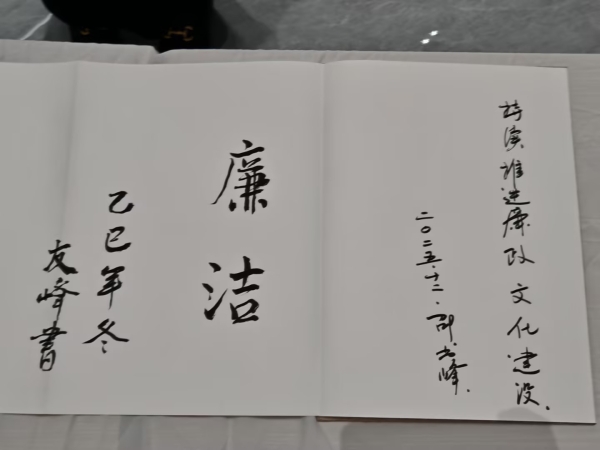 持续推进廉政文化建设.
二〇二五.十二.
廉洁
乙巳年冬
友峰書